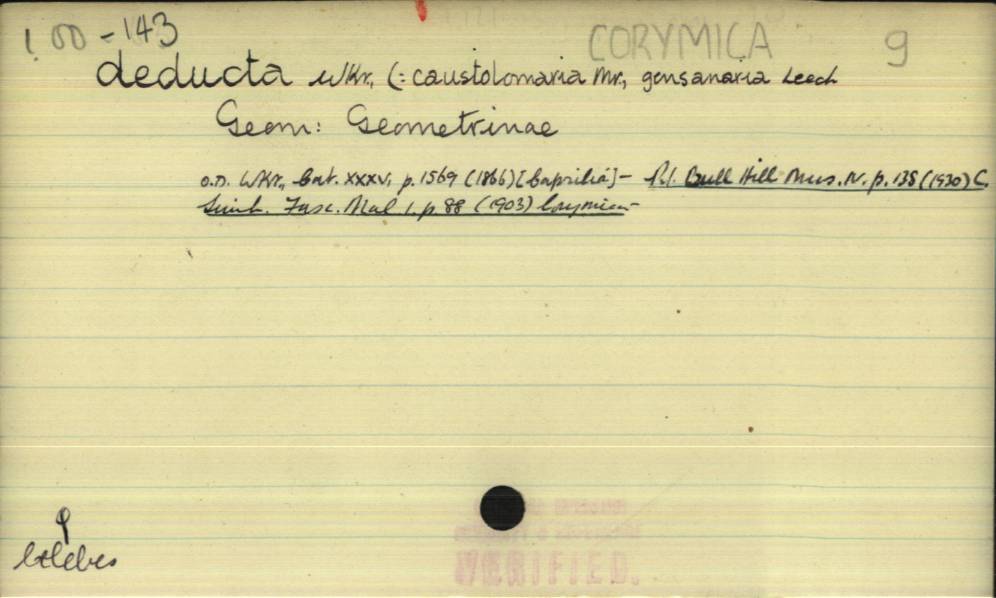 1.00-143 CORYMICA 9
deducta Wkr, (: caustolomaria Mr, gensanaria Leech
Geom: Geometrinae
o.D. Wkr, Cat. XXXV, p. 1569 (1866) [Caprilia] - Pl. Bull Hill Mus. IV. p. 138 (1930) C.
Swinh. Fasc. Mal 1. p. 88 (1903) Corymica -
♀
Celebes
VERIFIED.